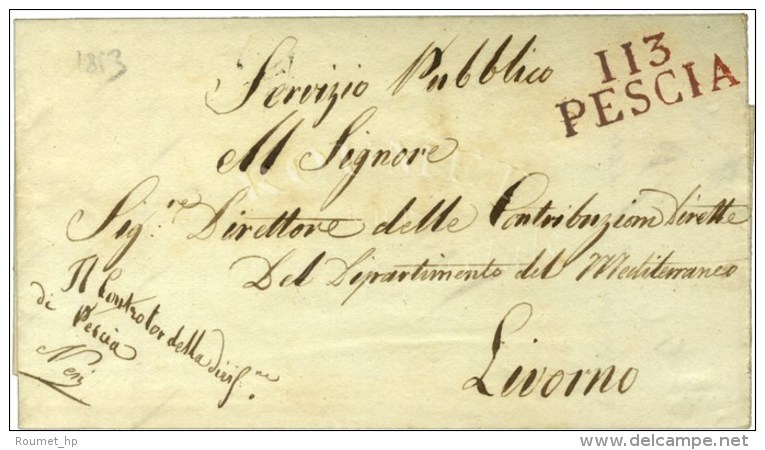 1813
Servizio Pubblico
113
PESCIA
Al Signore
Sig.re Direttore delle Contribuzioni Dirette
Del Dipartimento del Mediterraneo
Livorno
Il Controlor della divis.ne
di Pescia
Roumet_hp
delcampe.net